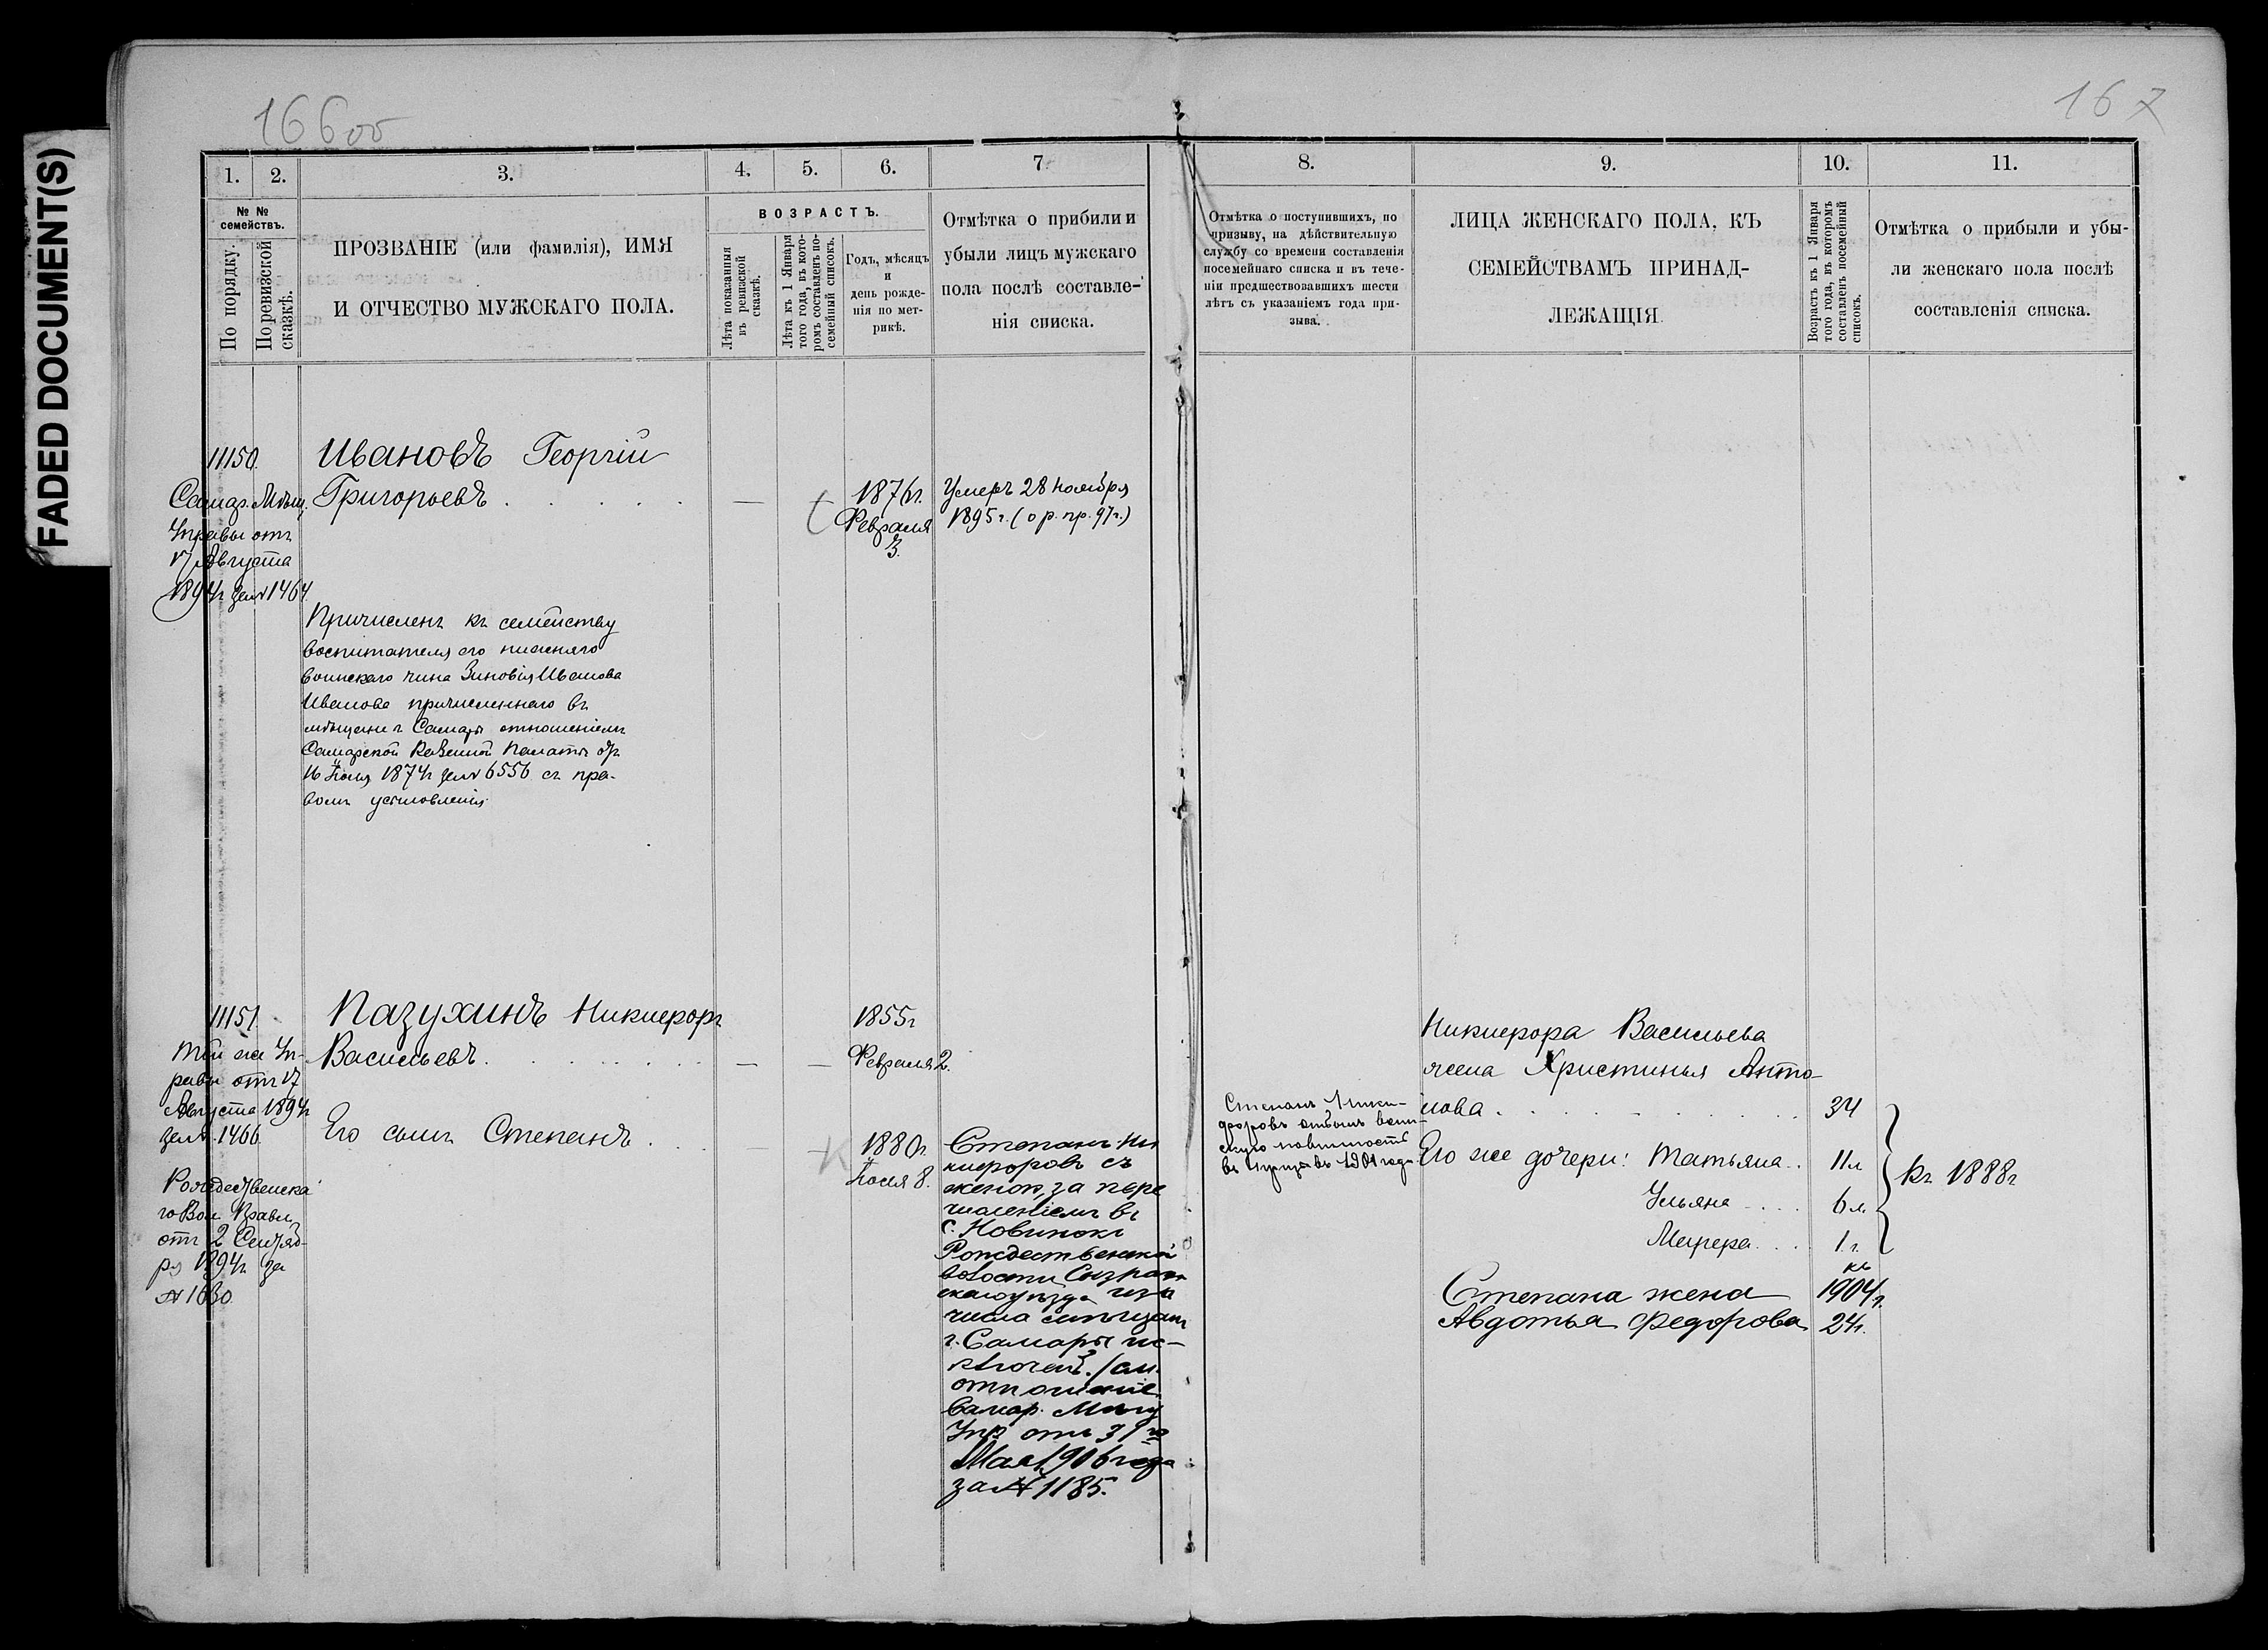 FADED DOCUMENT(S)
166об
167
1.
2.
3.
4.
5.
6.
7.
8.
9.
10.
11.
№ №
семействъ.
По порядку.
По ревизской
сказкѣ.
ПРОЗВАНІЕ (или фамилія), ИМЯ
И ОТЧЕСТВО МУЖСКАГО ПОЛА.
ВОЗРАСТЪ.
Лѣта показанныя
въ ревизской
сказкѣ.
Лѣта къ 1 Января
того года, въ кото-
ромъ составленъ по-
семейный списокъ.
Годъ, мѣсяцъ
и
день рожде-
нія по мет-
рикѣ.
Отмѣтка о прибыли и
убыли лицъ мужскаго
пола послѣ составле-
нія списка.
Отмѣтка о поступившихъ, по
призыву, на дѣйствительную
службу со времени составленія
посемейнаго списка и въ тече-
ніи предшествовавшихъ шести
лѣтъ съ указаніемъ года при-
зыва.
ЛИЦА ЖЕНСКАГО ПОЛА, КЪ
СЕМЕЙСТВАМЪ ПРИНАД-
ЛЕЖАЩІЯ.
Возрастъ къ 1 Января
того года, въ которомъ
составленъ посемейный
списокъ.
Отмѣтка о прибыли и убы-
ли женскаго пола послѣ
составленія списка.
11150.
Самар. Мѣщ.
Управы отъ
17 Августа
1894г за № 1464.
Ивановъ Георгій
Григорьевъ . . . . . —
1876г.
Февраля
3.
Умеръ 28 Ноября
1895г. (о р. пр. 97г.)
Причисленъ къ семейству
воспитателя его нижняго
воинскаго чина Зиновія Иванова
Иванова причисленнаго въ
мѣщане г Самары отношеніемъ
Самарской Казенной Палаты отъ
16 Іюля 1874г за № 6556 съ пра-
вомъ усыновленія
11151.
Той же Уп-
равы отъ 17
Августа 1894г
за № 1466
Рождественска
го Вол. Правл.
отъ 2 Сентяб-
ря 1894г. за
№ 1630
Пазухинъ Никифоръ
Васильевъ . . . . . — —
1855г
Февраля 2.
Его сынъ Степанъ . . — —
1880г.
Іюля 8.
Степанъ Ни
кифоровъ съ
женою, за пере
численіемъ въ
с. Новинки
Рождественской
волости Сызран
скаго уѣзда изъ
числа мѣщанъ
г. Самары ис-
ключенъ. (см.
отношеніе
Самар. Мѣщ
Упр. отъ 31го
Мая 1906 года
за № 1185.
Степанъ Ники-
форовъ отбылъ воин-
скую повинность
въ призывъ 1901 года
Никифора Васильева
жена Христинья Анто-
нова . . . . . . 34
Его же дочери: Татьяна . . 11л
Ульяна . . . . 6л.
Матрена . . . 1г.
къ 1888г
Степана жена
Авдотья Федорова
къ
1904г.
24г.